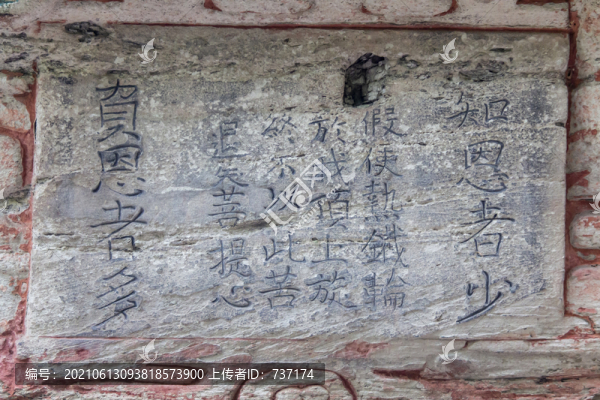 知恩者少
假使熱鐵輪
於我頂上旋
終不以此苦
退失菩提心
負恩者多
編号:20210613093818573900 上传者ID:737174